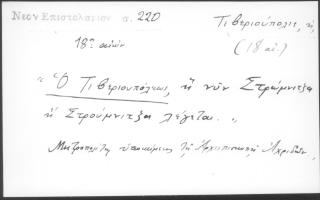 Νεον Επιστολαριον σ. 220
Τιβεριούπολις, ἡ
18ος αἰών
(18 αἰ.)
" Ὁ Τιβεριουπόλεως, ἢ νῦν Στρώμνιτζα
ἢ Στρούμνιτζα λέγεται. "
Μητροπολίτης ὑποκείμενος τῇ Ἀρχιεπισκοπῇ Ἀχριδῶν